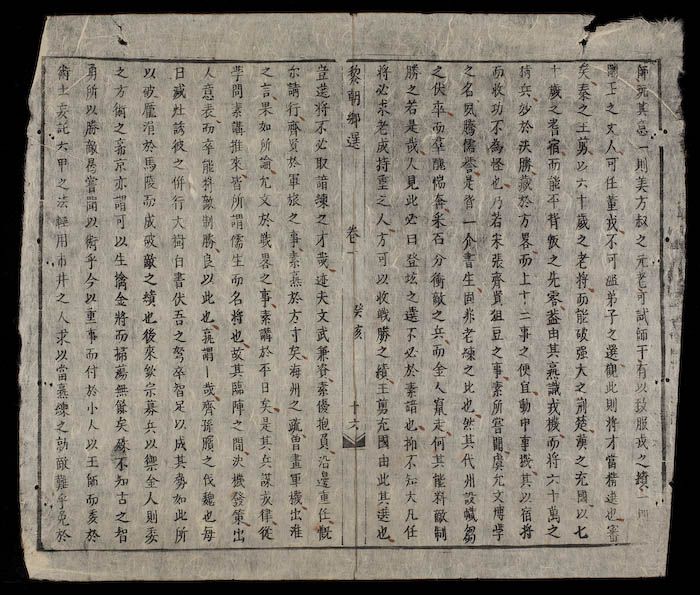 師玩其急一則美方叔之元老可試師于有以致服戎之績一則
王之丈人可任董戎不可溫弟子之選觀此則將才當擇速也審
矣秦之王剪以六十歲之老將而能破强大之荆楚漢之充國以七
十歲之耆宿而能平背叛之先零盖由其熹識戎機而將六十萬之
猜兵妙於决勝藏於方畧而上十二事之便宜動中事機其以宿將
而收功不為怪也乃若宋張齊賢狙豆之事素所嘗聞虞允文博學
之名夙騰儒譽是皆一介書生固非老練之比也然其代州設幟芻
之伏卒而卒醜傷奔采石分衝敵之兵而金人竄走何其能料敵制
勝之若是哉人見此必曰登坛之選不必於素諳也抑不知大凡任
將必求老成持重之人方可以收戰勝之績王剪充國由此其選也
黎朝鄉選 卷一 癸亥 十六
豈选將不必取諳練之才哉迹夫文武兼資素優抱負沿邊重任慨
尒請行齊賢於軍旅之事素熹於方寸矣海州之疏曾畫軍機出淮
之言果如所論允文於戰畧之事素講於平日矣是其兵謀戎律從
學問素講推來皆所謂儒生而名將也故其臨陣之間决機發策出
人意表而卒能料敵制勝良以此也謂一哉齊孫臏之伐魏也每
日减灶誘彼之併行大樹白書伏吾之弩卒智足以成其勢如此所
以破龎涓於馬陵而成破敵之績也後來欽宗募兵以禦金人則委
之方術之斋京亦謂可以生擒金將而掃蕩無餘矣殊不知古之智
勇所以勝敵曷嘗聞以術乎今以重事而付於小人以王師而委於
術士妄託六甲之法經用市井之人求以當熹練之勍敵難乎免於